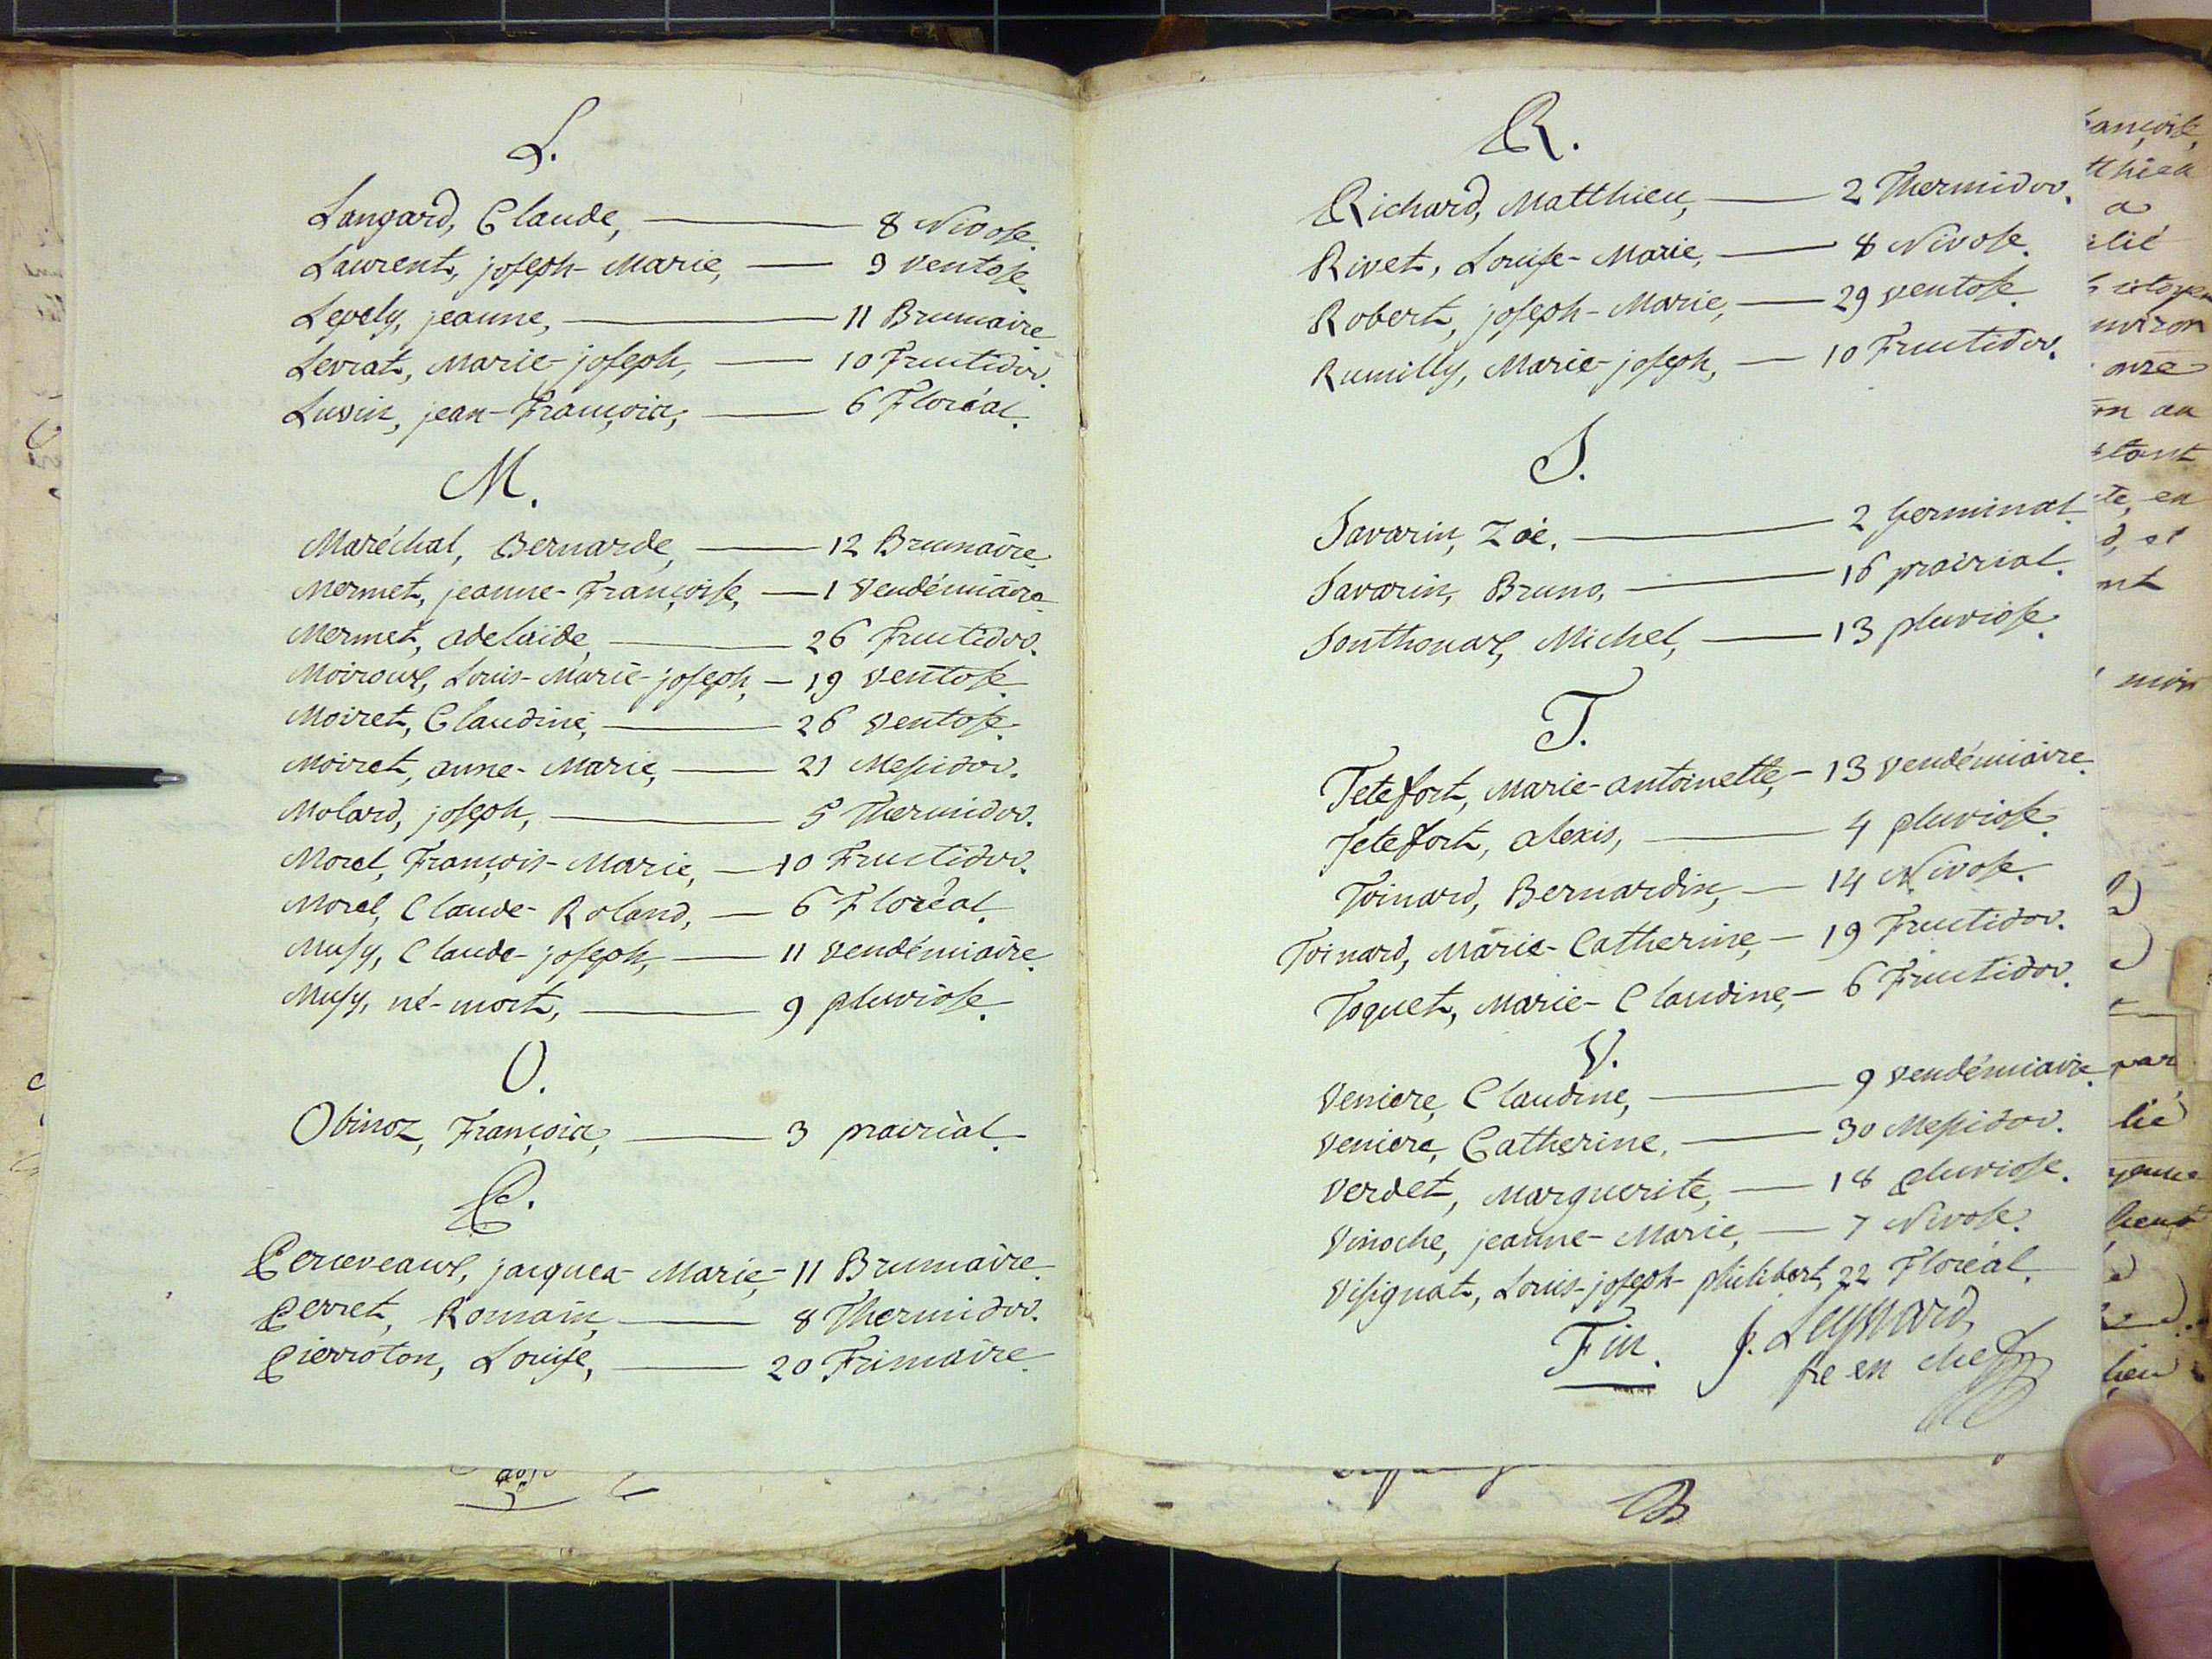 L.
Langard, Claude, 8 Nivose.
Laurent, joseph-Marie, 9 ventose.
Lepely, jeanne, 11 Brumaire
Levrat, Marie-joseph, 10 Fructidor.
Luvin, jean-François, 6 Floréal.
M.
Maréchal, Bernarde, 12 Brumaire.
Mermet, jeanne-Françoise, 1 vendémiaire
Mermet, adelaide, 26 Fructidor.
Moiroux, Louis-Marie-joseph, 19 ventose.
Moiret, Claudine, 26 ventose.
Moiret, anne-Marie, 21 Messidor.
Molard, joseph, 5 Thermidor.
Morel, François-Marie, 10 Fructidor.
Morel, Claude-Roland, 6 Floréal.
Musy, Claude-joseph, 11 vendémiaire.
Musy, né-mort, 9 pluviose.
O.
Obinoz, François, 3 prairial.
P.
Perceveaux, jacques-Marie, 11 Brumaire.
Perret, Romain, 8 Thermidor.
Pierroton, Louise, 20 Frimaire.
R.
Richard, Matthieu, 2 Thermidor.
Rivet, Louise-Marie, 8 Nivose.
Robert, joseph-Marie, 29 ventose.
Rumilly, Marie-joseph, 10 Fructidor.
S.
Savarin, Zoé, 2 Germinal.
Savarin, Bruno, 16 prairial.
Sonthonax, Michel, 13 pluviose.
T.
Tetefort, Marie-antoinette, 13 vendémiaire.
Tetefort, alexis, 4 pluviose.
Toinard, Bernardin, 14 Nivose.
Toinard, Marie-Catherine, 19 Fructidor.
Toquet, Marie-Claudine, 6 Fructidor.
V.
Veniere, Claudine, 9 vendémiaire.
Veniere, Catherine, 30 Messidor.
Verdet, Marguerite, 18 pluviose.
Vinoche, jeanne-Marie, 7 Nivose.
Visignat, Louis-joseph-philibert, 22 Floréal.
Fin. J.
re en chef